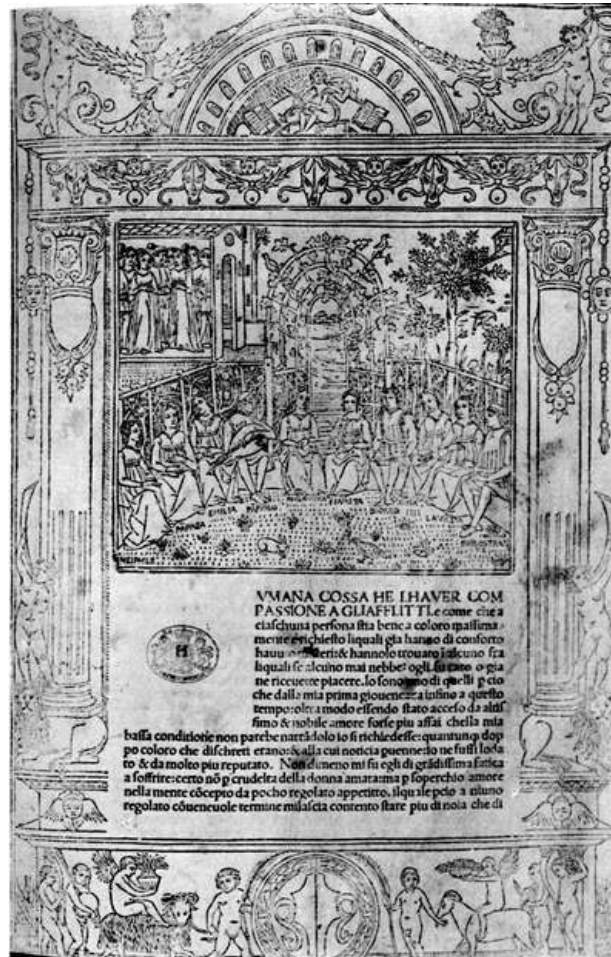 EMILIA
VMANA COSSA HE LHAVER COM
PASSIONE A GLIAFFLITTI.e come che a
ciaschuna persona stia bene a coloro massima-
mente è richiesto liquali gia hanno di conforto
hauu & hannolo trouato i alcuno fra
liquali se alcuno mai nebbe o gia
ne riceuette piacere. Io sono uno di quelli p cio
che dalla mia prima gioueneza infino a questo
tempo: oltra modo essendo stato acceso da altis
simo & nobile amore forse piu assai chella mia
bassa conditione non parebe narrãdolo io si richiedesse: quantunq; dop
po coloro che dischreti erano: & alla cui noticia puenne: io ne fussi loda
to & da molto piu reputato. Non dimeno mi fu egli di grãdissima fatica
a soffrire: certo nõ p crudelta della donna amata: ma p soperchio amore
nella mente cõcepto da pocho regolato appetitto. ilquale pcio a niuno
regolato cõueneuole termine milascia contento stare piu di noia che di